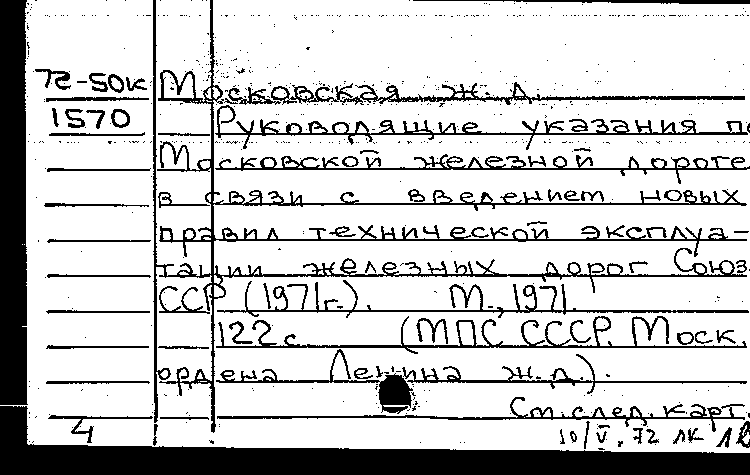 72-50к Московская ж. д.
1570 Руководящие указания по
Московской железной дороге
в связи с введением новых
правил технической эксплуа-
тации железных дорог Союз
ССР (1971г.). М., 1971.
122 с (МПС СССР. Моск.
ордена Ленина ж.д.).
См. след. карт.
4 10/V.72 ЛК